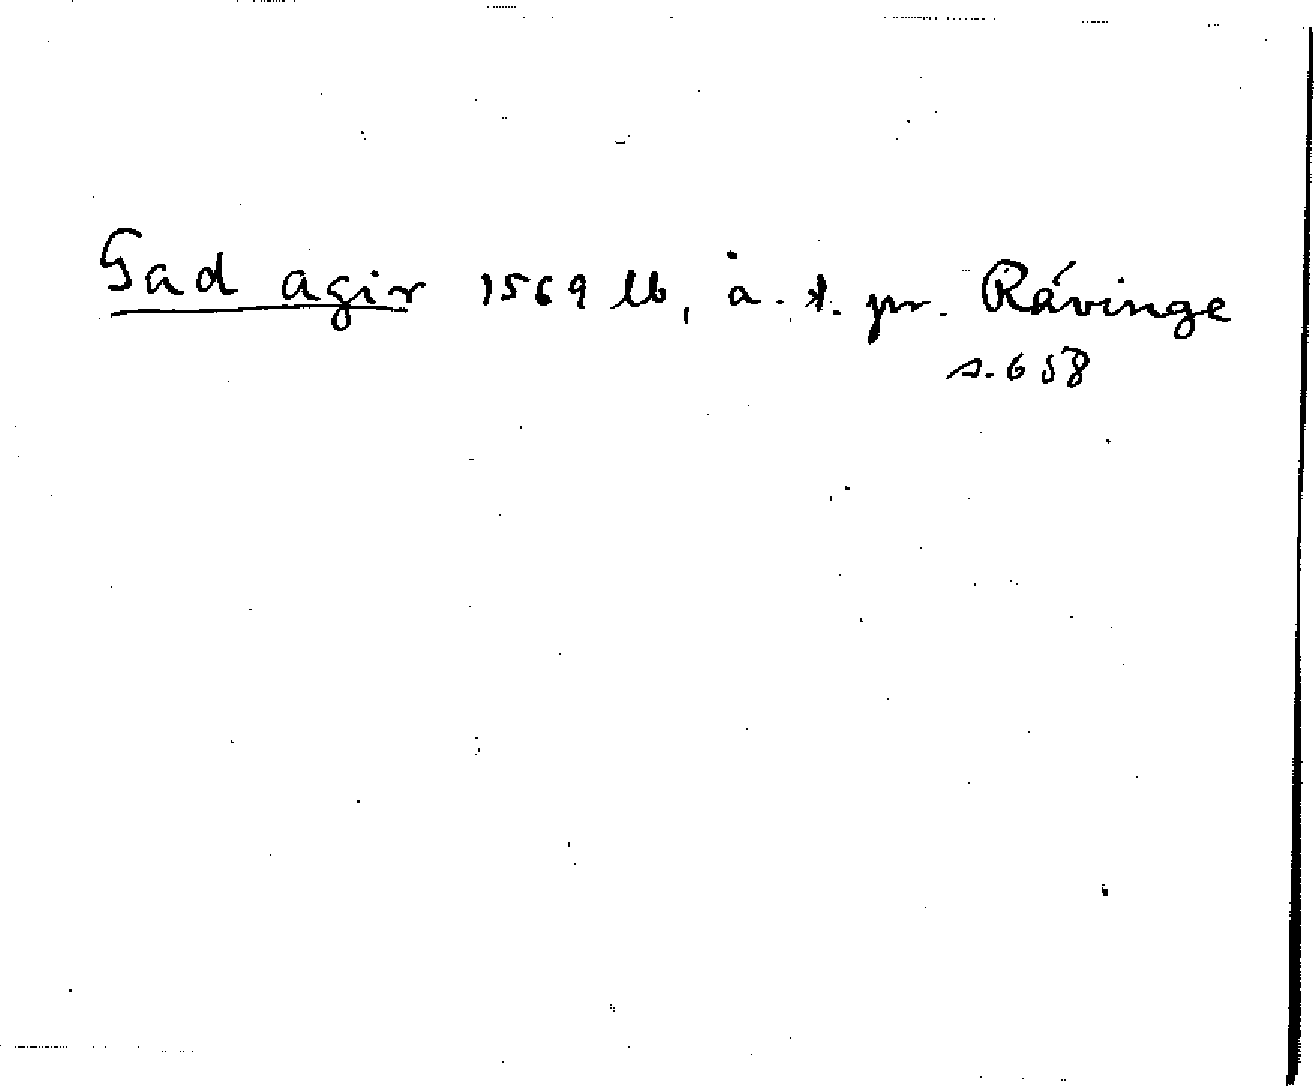 Gad agir 1569 lb, å. t. pr. Rávinge
s. 658